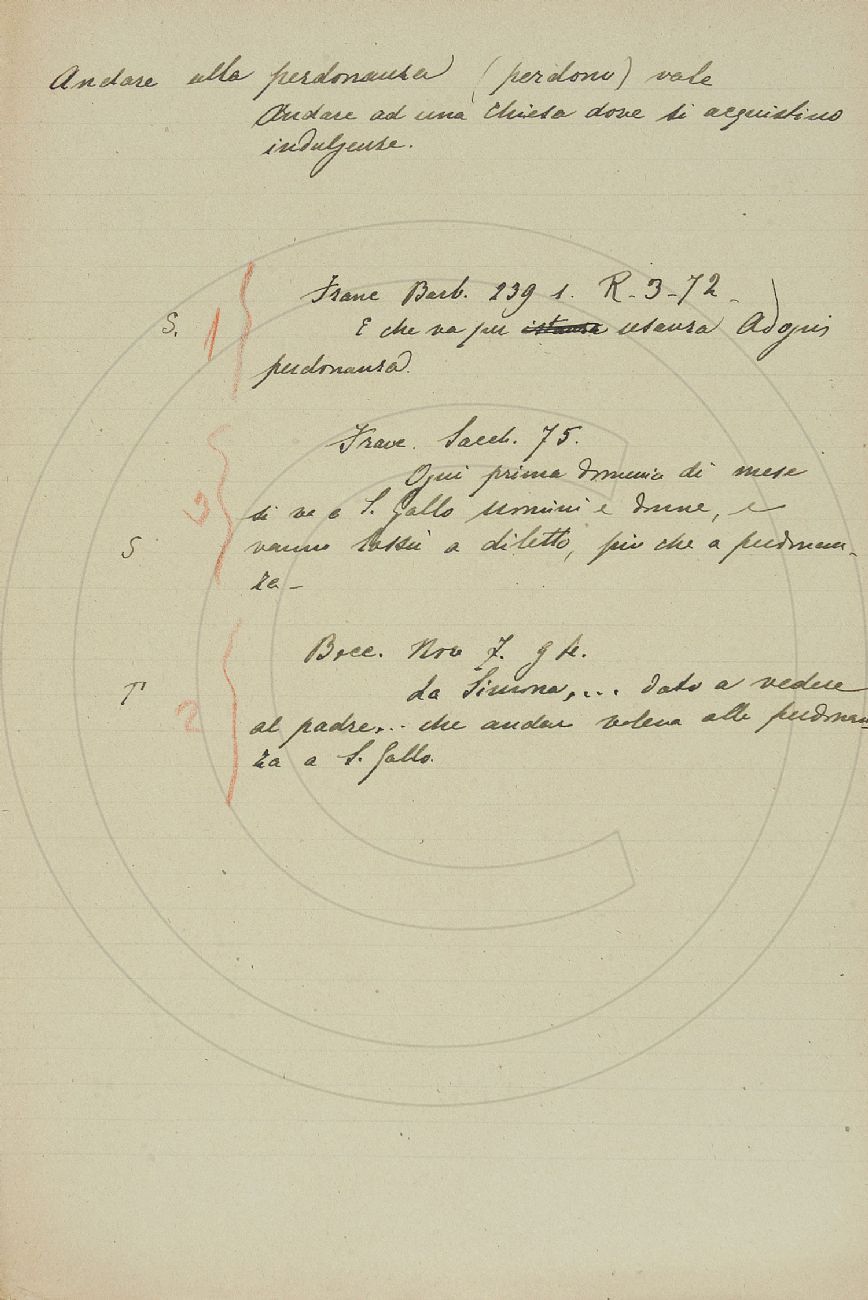 Andare alla perdonanza (perdono) vale
Andare ad una Chiesa dove si acquistino
indulgenze.
Franc Barb. 239 1. R-3-72-
S. 1 E che va per istanza usanza Ad ogni
perdonanza.
Franc. Sacch. 75.
Ogni prima domenica di mese
3 si va a S. Gallo uomini e donne, e
S vanno lassù a diletto, più che a perdonan-
za-
Bocc. Nov 7. g 4.
T 2 La Simona,... dato a vedere
al padre,.. che andar voleva alla perdonan-
za a S. Gallo.